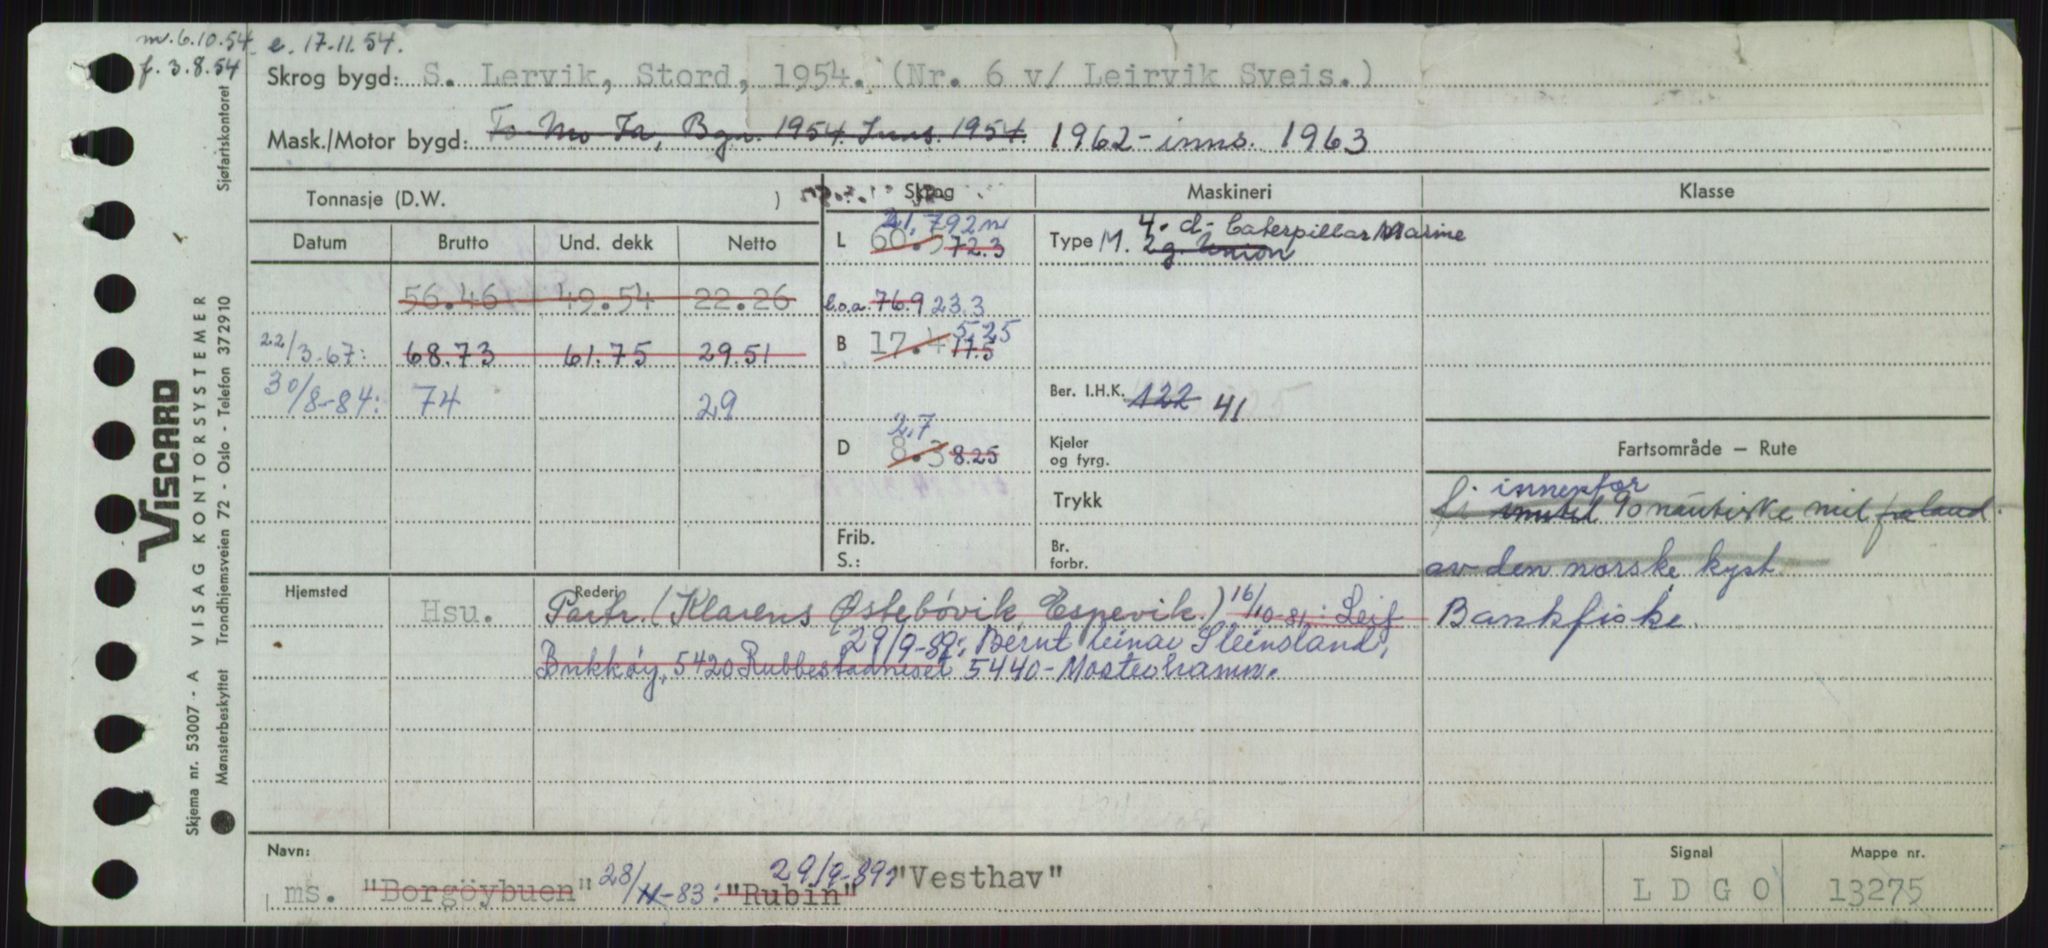 m. 6.10.54 e. 17.11.54.
f. 3.8.54
Skrog bygd: S. Lervik, Stord, 1954. (Nr. 6 v/ Leirvik Sveis.)
Mask./Motor bygd: To Mo Fa, Bgn. 1954. Inns. 1954. 1962 - inns. 1963
Tonnasje (D.W. ) Skrog Maskineri Klasse
Datum Brutto Und. dekk Netto
L 21,792 m 60.5 72.3
Type M. 4. d - Caterpillar Marine
2 g. Union
56.46 49.54 22.26
l.o.a. 76.9 23.3
22/3-67: 68.73 61.75 29.51
B 17.4 17.5 5,25
30/8-84: 74 29
Ber. I.H.K. 122 41
D 8.3 8.25 2,7
Kjeler
og fyrg.
Trykk
Frib.
S.:
Br.
forbr.
Fartsområde – Rute
fi innenfor
inntil 90 nautiske mil fra land.
av den norske kyst.
Bankfiske.
Hjemsted Rederi
Hsu. Partr. (Klarens Østebövik, Espevik.) 16/10-81: Leif
29/9-89: Bernt Einar Steinsland,
Brukköy, 5420 Rubbestadneset 5440 - Mosterhamn.
Navn:
ms. "Borgöybuen" 28/11-83: "Rubin" 29/9-89: "Vesthav"
Signal
L D G O
Mappe nr.
13275
Sjøfartskontoret
VISCARD
VISAG KONTORSYSTEMER
Skjema nr. 53007 - A
Mønsterbeskyttet Trondhjemsveien 72 - Oslo - Telefon 372910